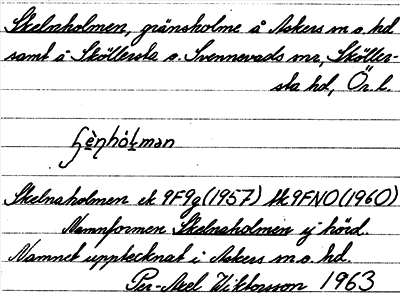 Skelnaholmen, gränsholme å Askers m o. hd
samt å Sköllersta o. Svennevads mr, Sköller-
sta hd, Ör. l.
Skelnaholmen ek 9F9g (1957) tk 9FNO (1960)
Namnformen Skelnaholmen ej hörd.
Namnet upptecknat i Askers m o. hd.
Per-Axel Wiktorsson 1963